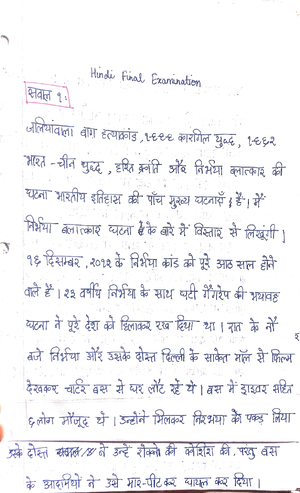 Hindi Final Examination
सवाल १:
जलियांवाला बाग हत्याकांड, १९९९ कारगिल युद्ध, १९६२
भारत - चीन युद्ध, हरित क्रांति और निर्भया बलात्कार की
घटना भारतीय इतिहास की पाँच मुख्य घटनाएँ हैं। मैं
निर्भया बलात्कार घटना के बारे में विस्तार से लिखूंगी।
१६ दिसम्बर, २०१२ के निर्भया कांड को पूरे आठ साल होने
वाले हैं। २३ वर्षीय निर्भया के साथ घटी गैंगरेप की भयावह
घटना ने पूरे देश को हिलाकर रख दिया था। रात के नौ
बजे निर्भया और उसके दोस्त दिल्ली के साकेत मॉल से फिल्म
देखकर चार्टर बस से घर लौट रहे थे। बस में ड्राइवर सहित
६ लोग मौजूद थे। उन्होंने मिलकर निरभया को पकड़ लिया
उसके दोस्त ने उन्हें रोकने की कोशिश की, परंतु बस
के आदमियों ने उसे मार-पीटकर घायल कर दिया।